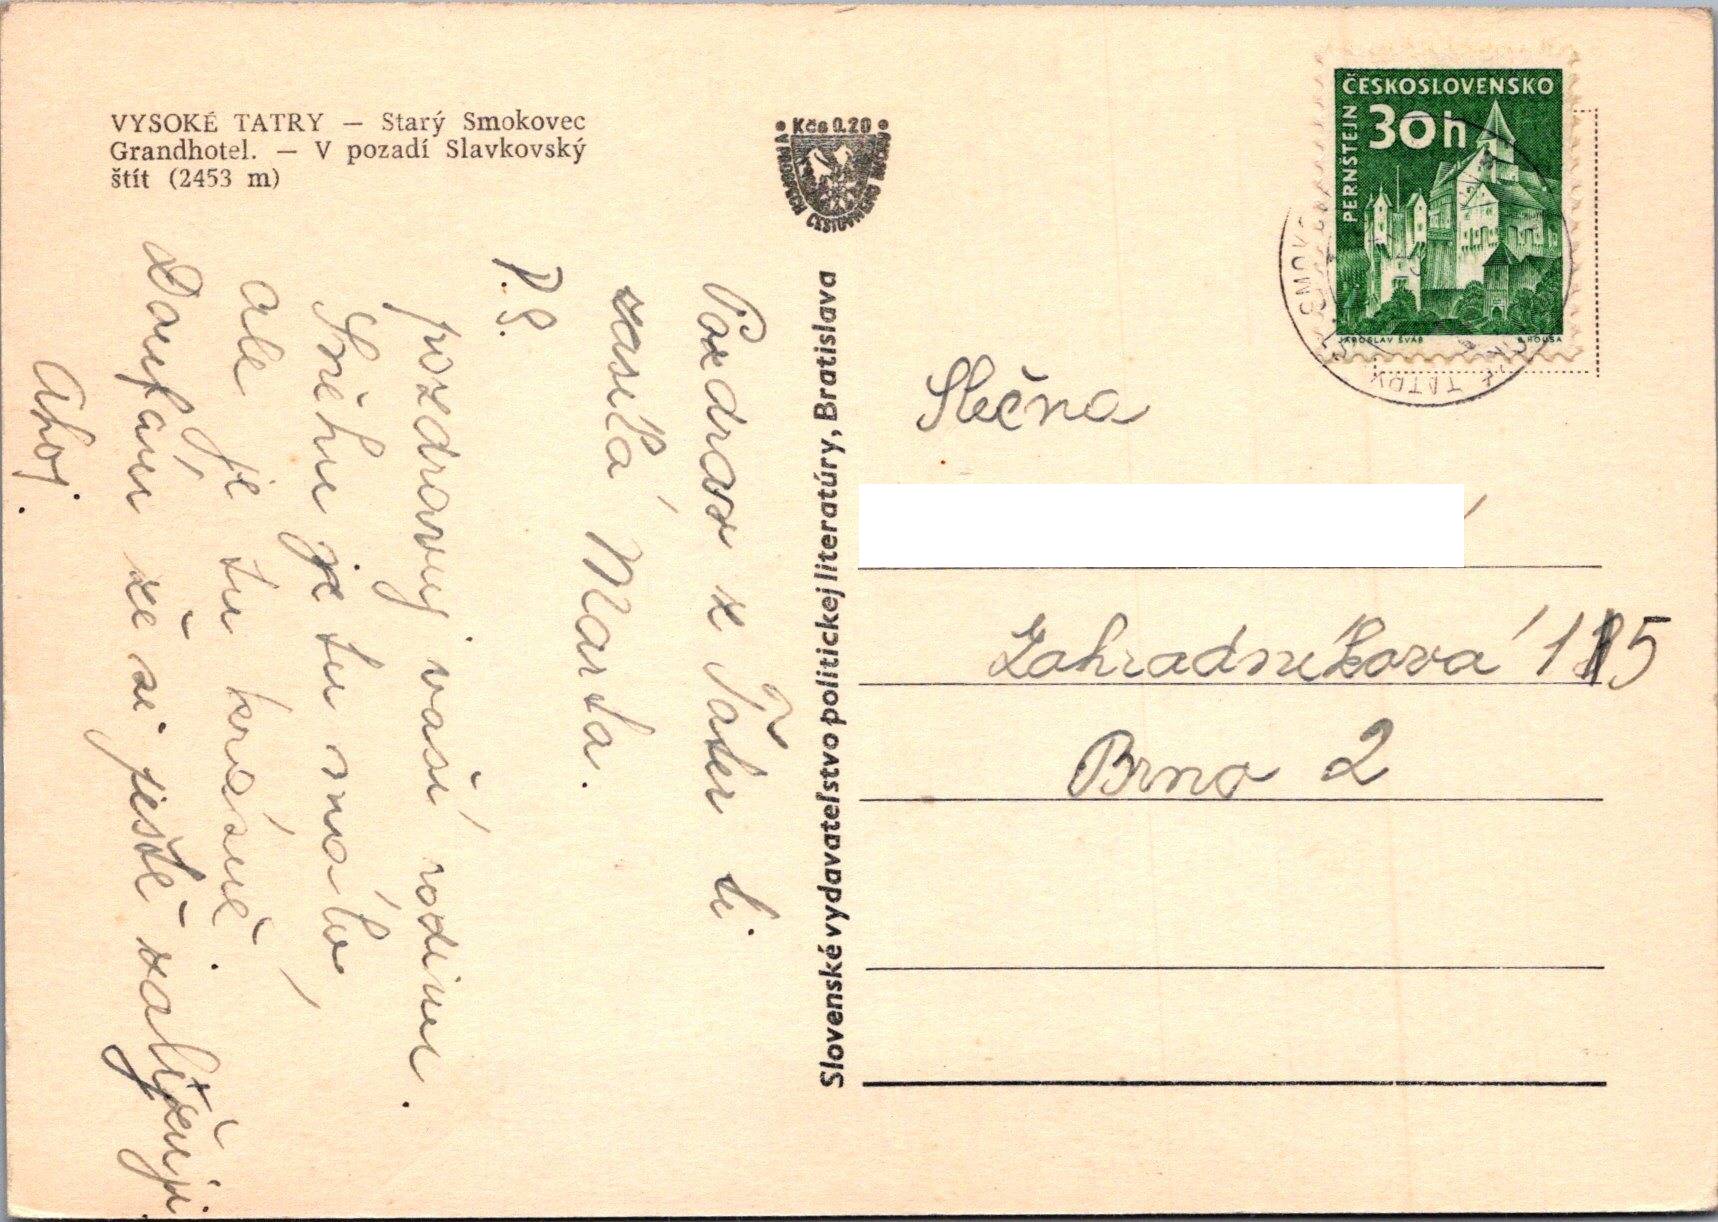 VYSOKÉ TATRY — Starý Smokovec
Grandhotel. — V pozadí Slavkovský
štít (2453 m)
Kčs 0.20
V PROSPECH CESTOVNÉHO RUCHU
Pozdrav z Tater ti
zasílá Marta.
P.S.
pozdravuj vaší rodinu.
Sněhu je tu málo,
ale je tu krásně.
Doufám že si ještě zalyžuji.
Ahoj.
Slovenské vydavateľstvo politickej literatúry, Bratislava
ČESKOSLOVENSKO
30h
PERNŠTEJN
JAROSLAV ŠVÁB
B. HOUSA
SMOKOV
TATRY
Slečna
Zahradníkova 115
Brno 2